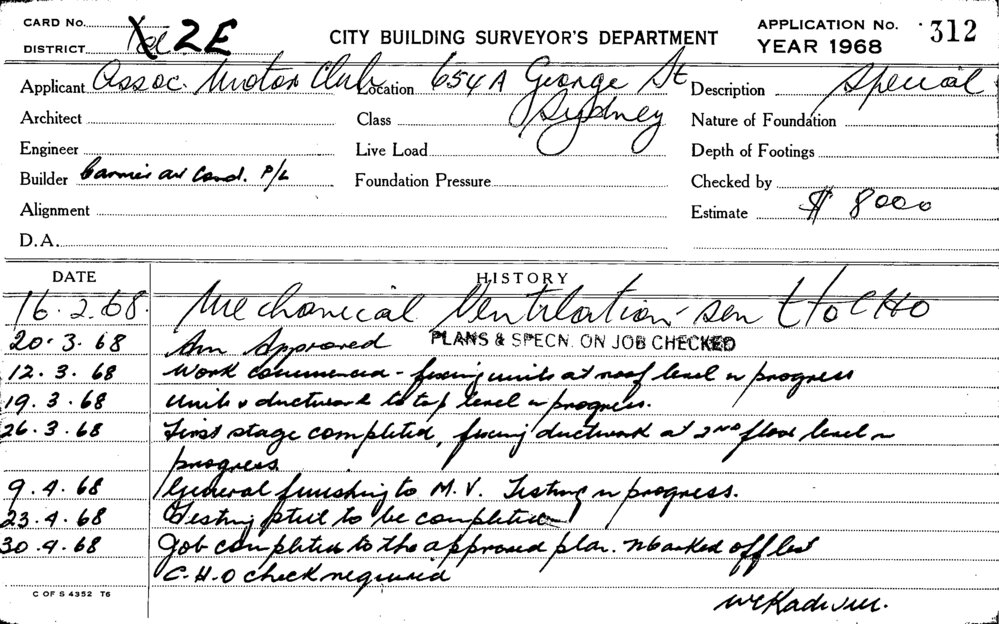 CARD No.
DISTRICT 2E
CITY BUILDING SURVEYOR'S DEPARTMENT
APPLICATION No. 312
YEAR 1968
Applicant Assoc. Motor Club Location 654A George St Sydney Description Special
Architect Class Nature of Foundation
Engineer Live Load Depth of Footings
Builder Carrier air Cond. P/L Foundation Pressure Checked by
Alignment Estimate $ 8000
D.A.
DATE HISTORY
16.2.68. Mechanical Ventilation - sent to CHO
20.3.68 Approved PLANS & SPECN. ON JOB CHECKED
12.3.68 Work commenced - fixing units at roof level in progress
19.3.68 Units & ductwork to top level in progress.
26.3.68 First stage completed, fixing ductwork at 2ND floor level in
progress
9.4.68 General finishing to M.V. Testing in progress.
23.4.68 Testing still to be completed
30.4.68 Job completed to the approved plan. Marked off list
C.H.O check required
C OF S 4352 T6